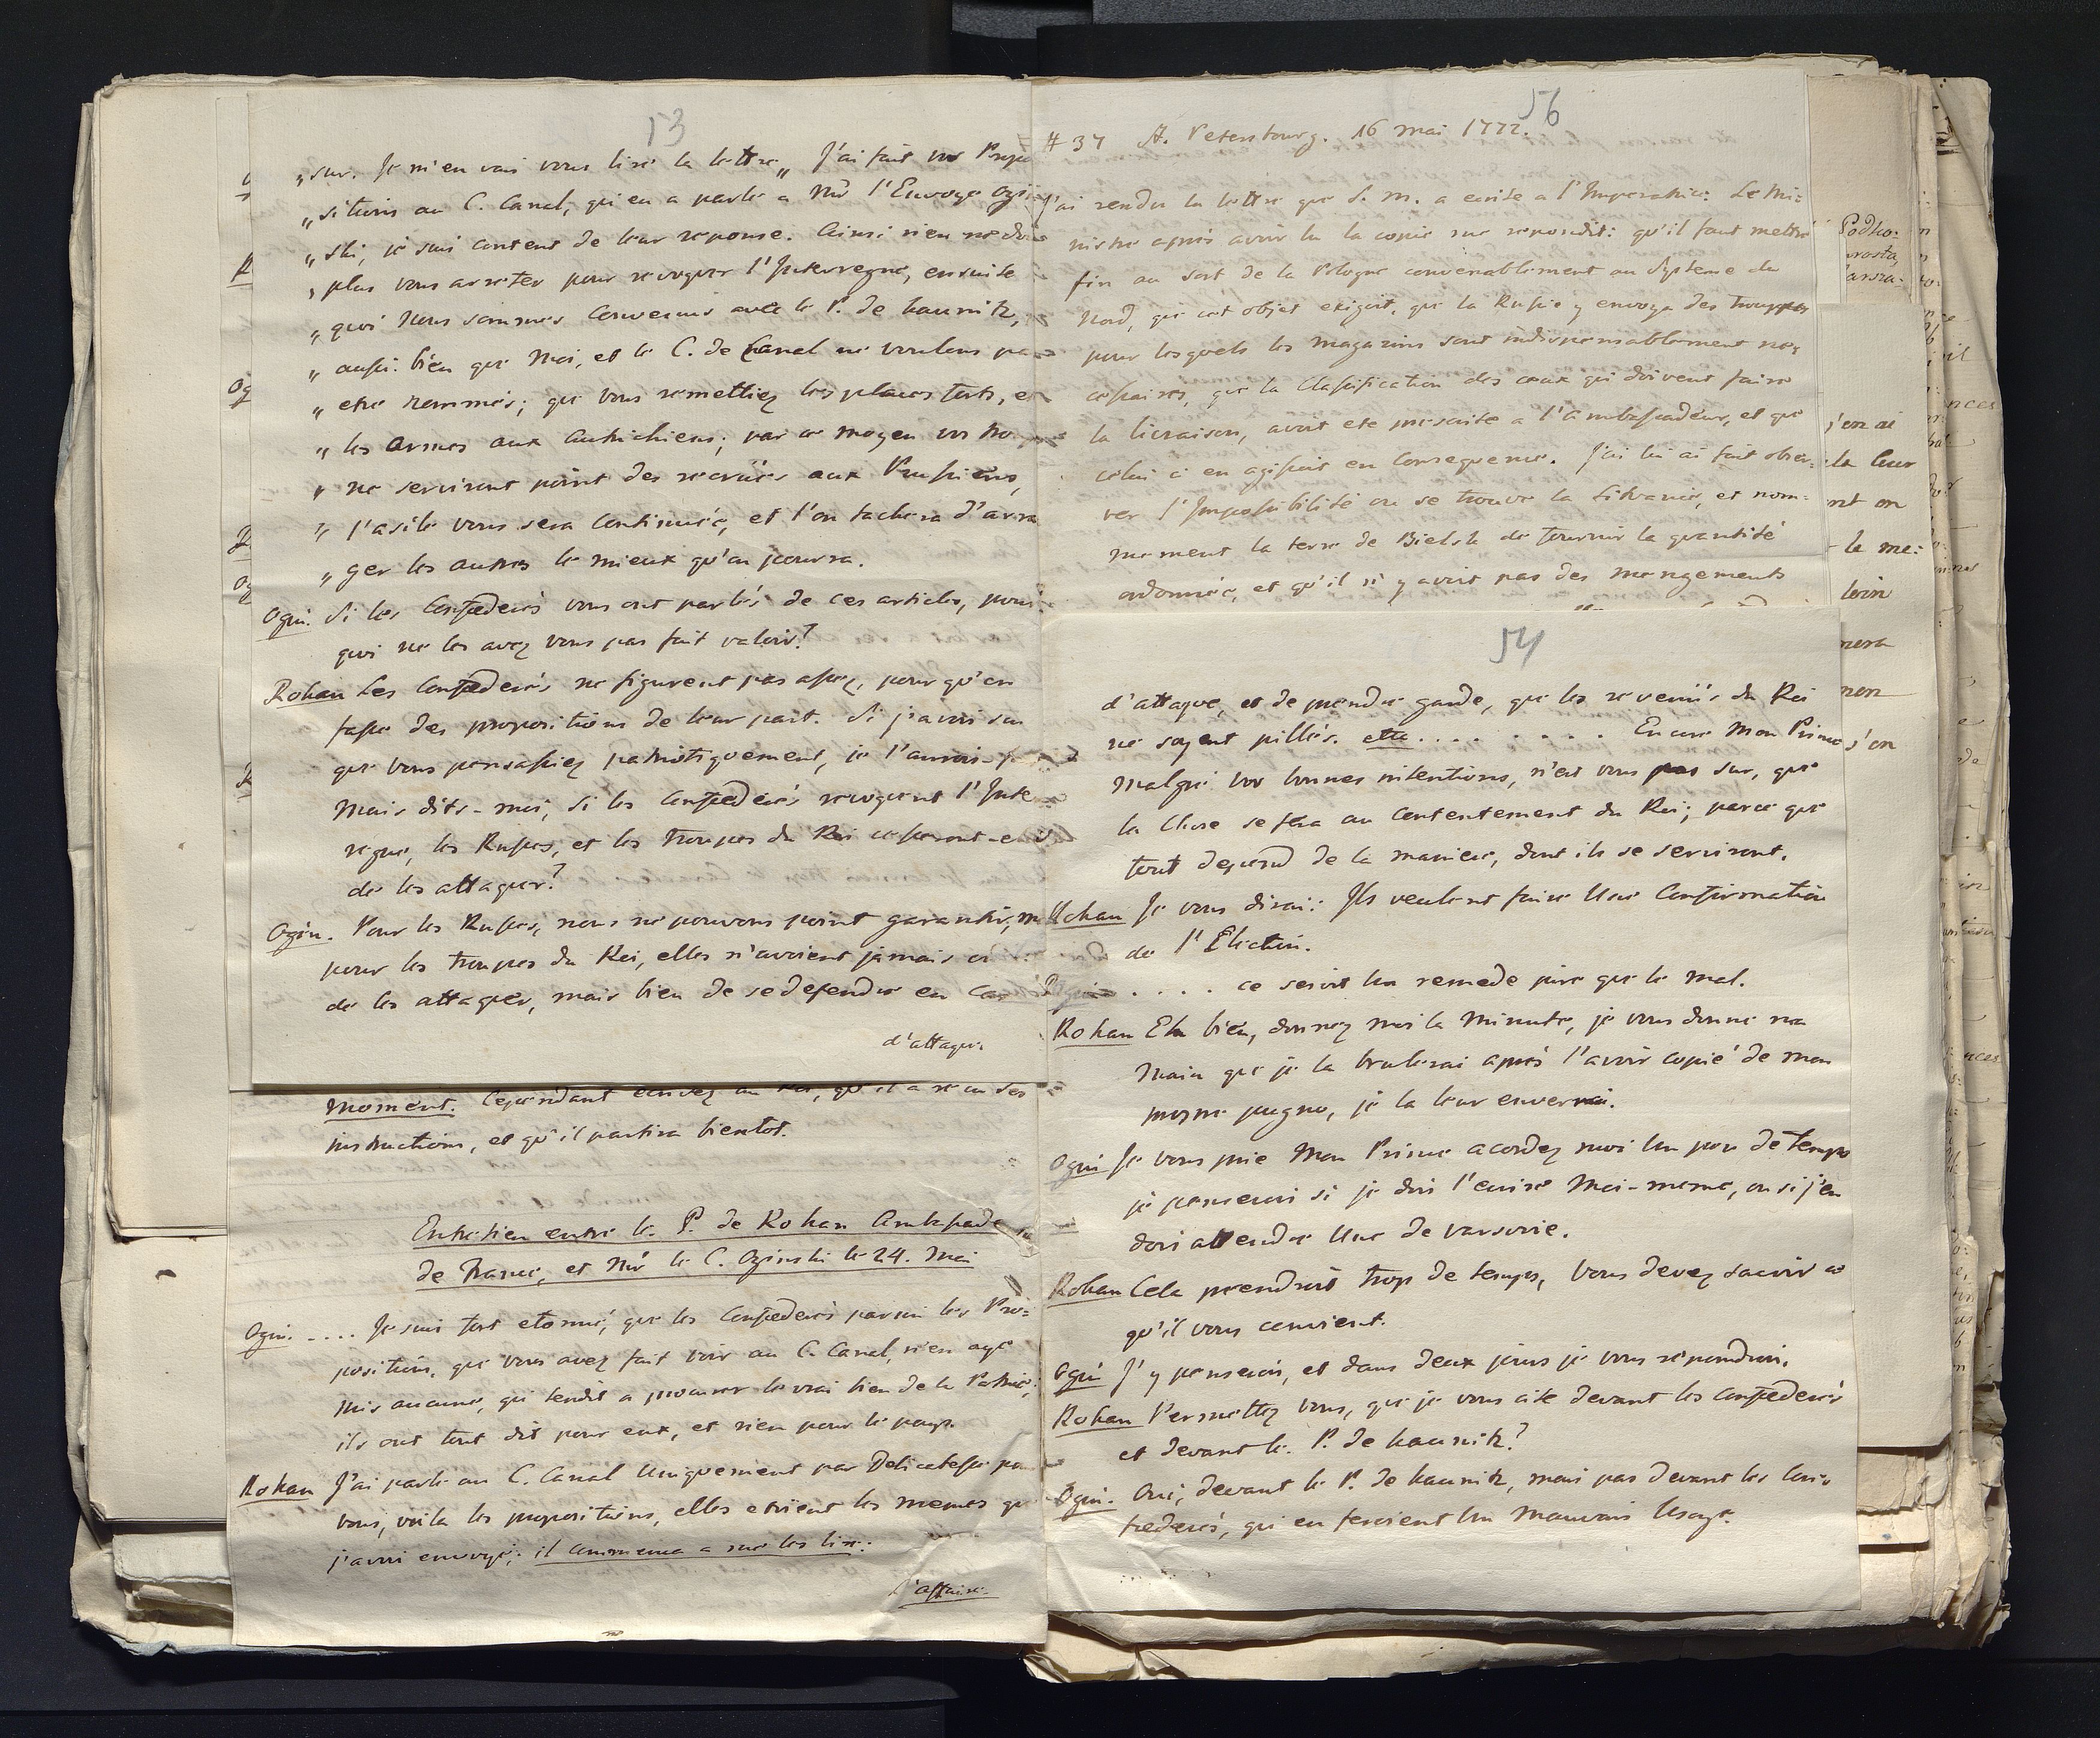 53
„sur. Je m'en vai vous lire la lettre„ J'ai fait vos Propo
„sitions au C. Canal, qui en a parlé a Mr l'Envoyé Ogin
„ski, je suis content de leur reponse. Ainsi rien ne doit
„plus vous arreter pour revoquer l'Interregne, ensuite
„quoi nous sommes convenus avec le P. de Kaunitz,
„aussi-bien que Moi, et le C. de Canal ne voulons pas
„etre nommés; que vous remettiez les places forts, et
„les armes aux Autrichiens; par ce moyen vos tro
„ne serviront point des recrües aux Prussiens,
„l'asile vous sera continuée, et l'on tachera d'arran
„ger les autres le mieux qu'on pourra.
Ogin. Si les Confederés vous ont parlés de ces articles, pour
quoi ne les avez vous pas fait valoir?
Rohan Les Confederés ne figurent pas assez, pour qu'on
fasse des propositions de leur part. Si j'avois su
que vous pensassiez patriotiquement, je l'aurois
Mais dits-moi, si les Confederés revoquent l'Inter
regne, les Russes, et les troupes du Roi cesseront-e
de les attaquer?
Ogin. Pour les Russes, nous ne pouvons point garantir, m
pour les troupes du Roi, elles n'avoient jamais or
de les attaquer, mais bien de se defendre en Cas
d'attaque.
Moment. Cependant ecrivez au Roi, qu'il a reçu ses
instructions, et qu'il partira bientot.
Entretien entre le P. de Rohan Ambassade
de France, et Mr le C. Oginski le 24. Mai
Ogin. .... Je suis fort etonné, que les Confederés parmi les Pro=
positions, que vous avez fait voir au C. Canal, n'en aye
mis aucune, qui tendit a procurer le vrai bien de la Patrie;
ils ont tout dit pour eux, et rien pour le pays.
Rohan J'ai parlé au C. Canal Uniquement par Delicatesse po
vous, voila les propositions, elles etoient les memes qu
j'avoi envoyé; il commença a me les lire:
l'affaire.
56
# 37 St. Petersbourg. 16 mai 1772.
J'ai rendu la lettre que S. M. a ecrite a l'Imperatrice. Le Mi=
nistre après avoir lu la copie me repondit: qu'il faut mettre
fin au Sort de la Pologne convenablement au Systeme du
Nord, que cet objet exigoit, que la Russie y envoya des trouppes
pour lesquels les magazins sont indispensablement ne=
cessaires, que la Classification des ceux qui doivent faire
la livraison, avoit eté prescrite a l'ambassadeur, et que
celui ci en agissoit en Consequence. J'ai lui ai fait obser=
ver l'Impossibilité ou se trouve la Lithuanie, et nom=
mement la terre de Bielsk de fournir la quantité
ordonnée, et qu'il n'y avoit pas des mengements
54
d'attaque, et de prendre garde, que les revenüs du Roi
ne soyent pillés. ette......... Encore Mon Prince
Malgré vos bonnes intentions, n'est vous pas sur, que
la Chose se fera au Contentement du Roi; parce que
tout depend de la maniere, dont ils se serviront.
Rohan Je vous dirai: Ils veulent faire Une Confirmation
de l'Election.
Ogin .... ce seroit un remede pire que le mal.
Rohan Eh bien, donnez moi la Minute, je vous donne ma
Main que je la brulerai après l'avoir copié de mon
propre pugno, je la leur enverrai.
Ogin Je vous prie Mon Prince acordez moi Un peu de temps
je penserai si je dois l'ecrire Moi-meme, ou si j'en
dois attendre Une de Varsovie.
Rohan Cela prendroit trop de temps, Vous devez sçavoir ce
qu'il vous convient.
Ogin J'y penserai, et dans deux jours je vous repondrai.
Rohan Permettez vous, que je vous cite devant les Confederés
et devant le P. de Kaunitz?
Ogin. Oui, devant le P. de Kaunitz, mais pas devant les Con=
federés, qui en feroient Un Mauvais Usage.
Podko=
j'en ai
la leur
nt on
le me:
loin
s'en